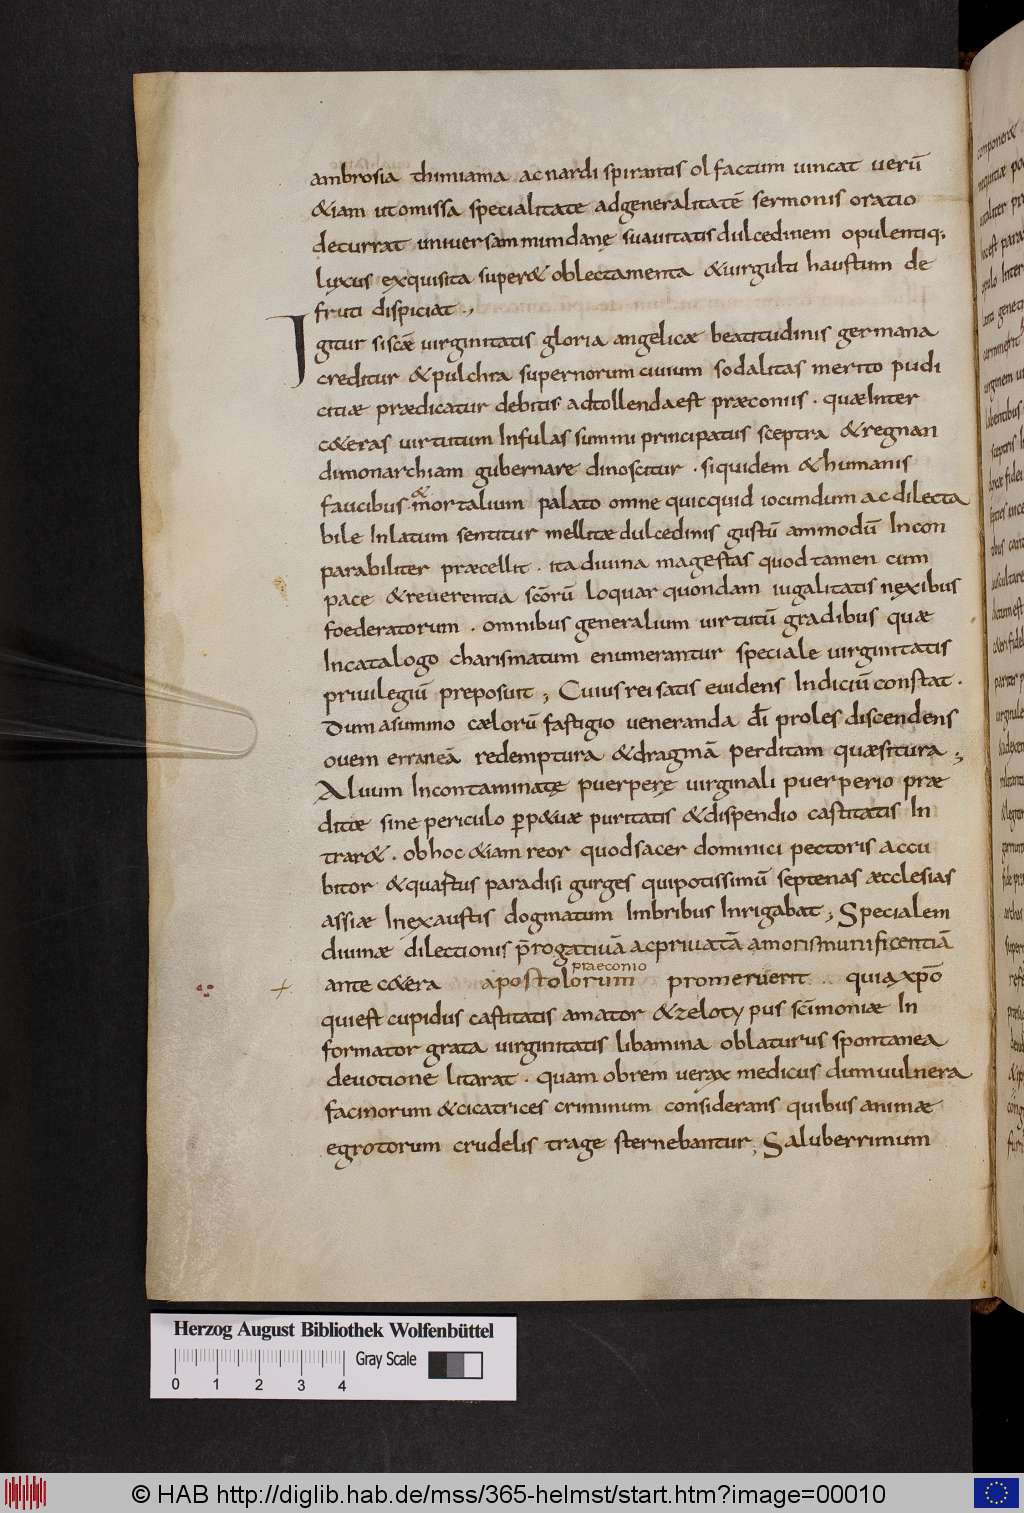 ambrosia thimiama ac nardi spirantis olfactum uincat uerū
&iam ut omissa specialitate ad generalitatē sermonis oratio
decurrat uniuersam mundanę suauitatis dulcedinem opulentiq;
luxus exquisita super& oblectamenta & uirgulti haustum de
fruti dispiciat.,
Igitur si scāē uirginitatis gloria angelicae beatitudinis germana
creditur & pulchra supernorum ciuium sodalitas merito pudi
citiae praedicatur debitis adtollenda est praeconiis . quae Inter
c&eras uirtutum Infulas summi principatus sceptra & regnan
di monarchiam gubernare dinoscitur . siquidem & humanis
faucibus & mortalium palato omne quicquid iocundum ac dilecta
bile Inlatum sentitur mellitae dulcedinis gustū ammodū Incon
parabiliter praecellit . ita diuina magestas quod tamen cum
pace & reuerentia scōrū loquar quondam iugalitatis nexibus
foederatorum . omnibus generalium uirtutū gradibus quae
In catalogo charismatum enumerantur speciale uirginitatis
priuilegiū preposuit ; Cuius rei satis euidens Indiciū constat .
Dum a summo caelorū fastigio ueneranda dī proles discendens
ouem erraneā redemptura & dragmā perditam quaesitura ;
Aluum Incontaminatę puerperę uirginali puerperio prae
ditae sine periculo perp&uae puritatis & dispendio castitatis In
trar& . ob hoc &iam reor quod sacer dominici pectoris accu
bitor & quastus paradisi gurges qui potissimū septenas aecclesias
assiae Inexaustis dogmatum Imbribus Inrigabat ; Specialem
diuinae dilectionis p̄rogatiuā ac priuatā amoris munificentiā
praeconio
ante c&era apostolorum promeruerit . quia xp̄o
qui est cupidus castitatis amator & zelotypus scīmoniae In
formator grata uirginitatis libamina oblaturus spontanea
deuotione litarat . quam obrem uerax medicus dum uulnera
facinorum & cicatrices criminum considerans quibus animae
egrotorum crudelis trage sternebantur ; Saluberrimum
Herzog August Bibliothek Wolfenbüttel
Gray Scale
0 1 2 3 4
© HAB http://diglib.hab.de/mss/365-helmst/start.htm?image=00010